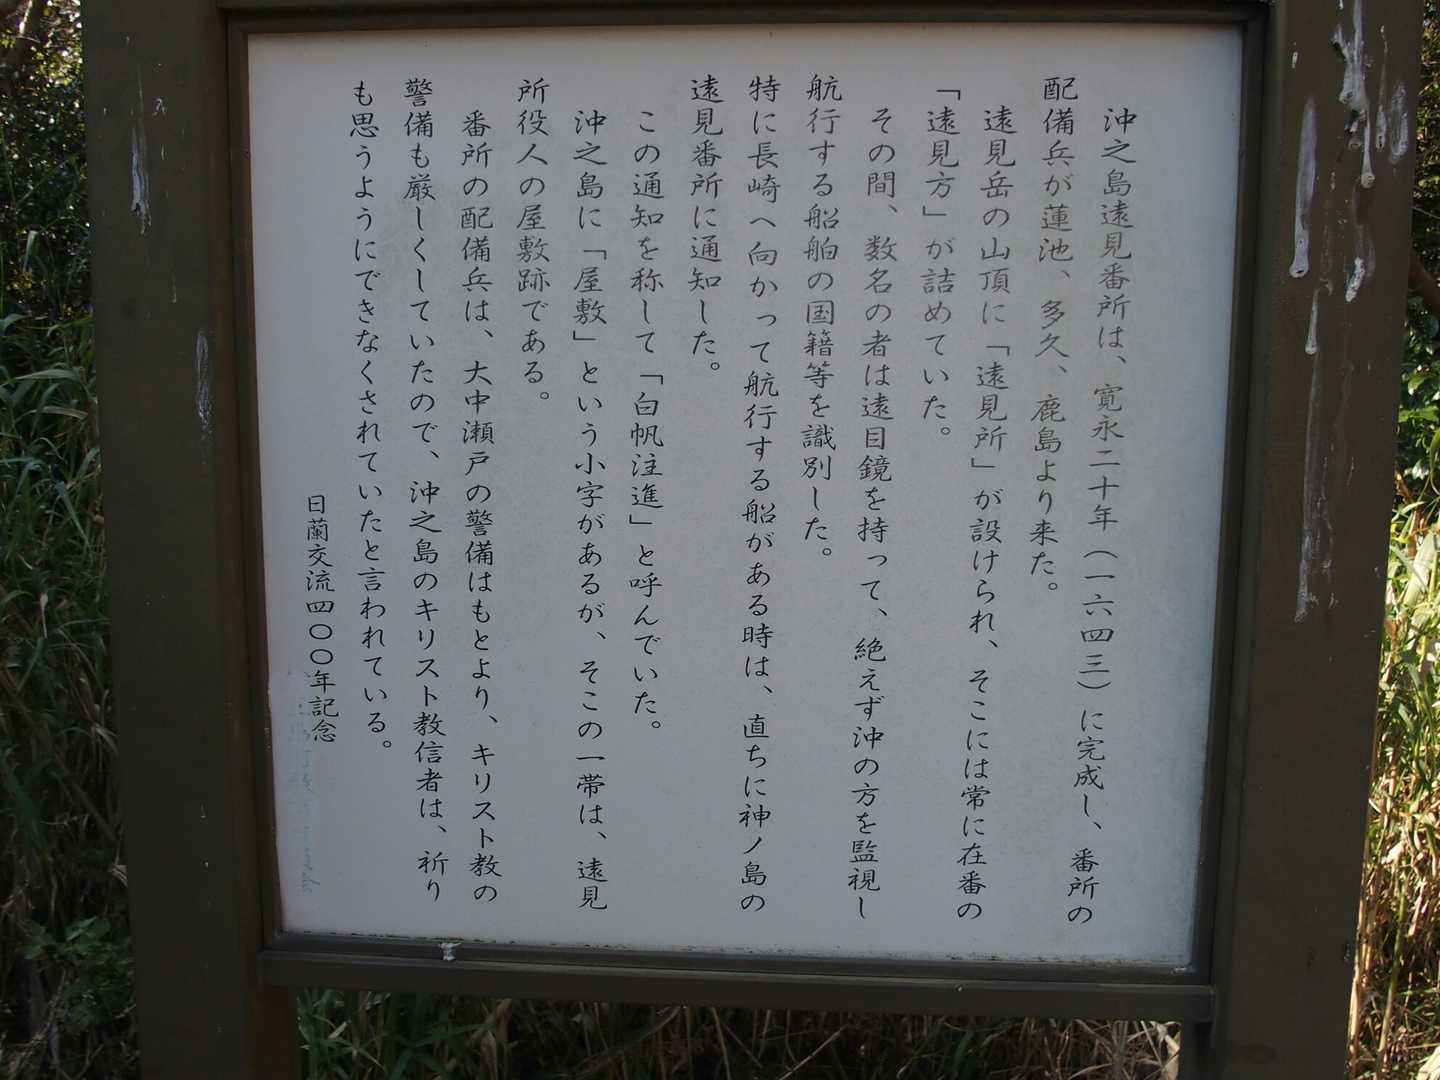 沖之島遠見番所は、寛永二十年（一六四三）に完成し、番所の
配備兵が蓮池、多久、鹿島より来た。
遠見岳の山頂に「遠見所」が設けられ、そこには常に在番の
「遠見方」が詰めていた。
その間、数名の者は遠目鏡を持って、絶えず沖の方を監視し
航行する船舶の国籍等を識別した。
特に長崎へ向かって航行する船がある時は、直ちに神ノ島の
遠見番所に通知した。
この通知を称して「白帆注進」と呼んでいた。
沖之島に「屋敷」という小字があるが、そこの一帯は、遠見
所役人の屋敷跡である。
番所の配備兵は、大中瀬戸の警備はもとより、キリスト教の
警備も厳しくしていたので、沖之島のキリスト教信者は、祈り
も思うようにできなくされていたと言われている。
日蘭交流四〇〇年記念